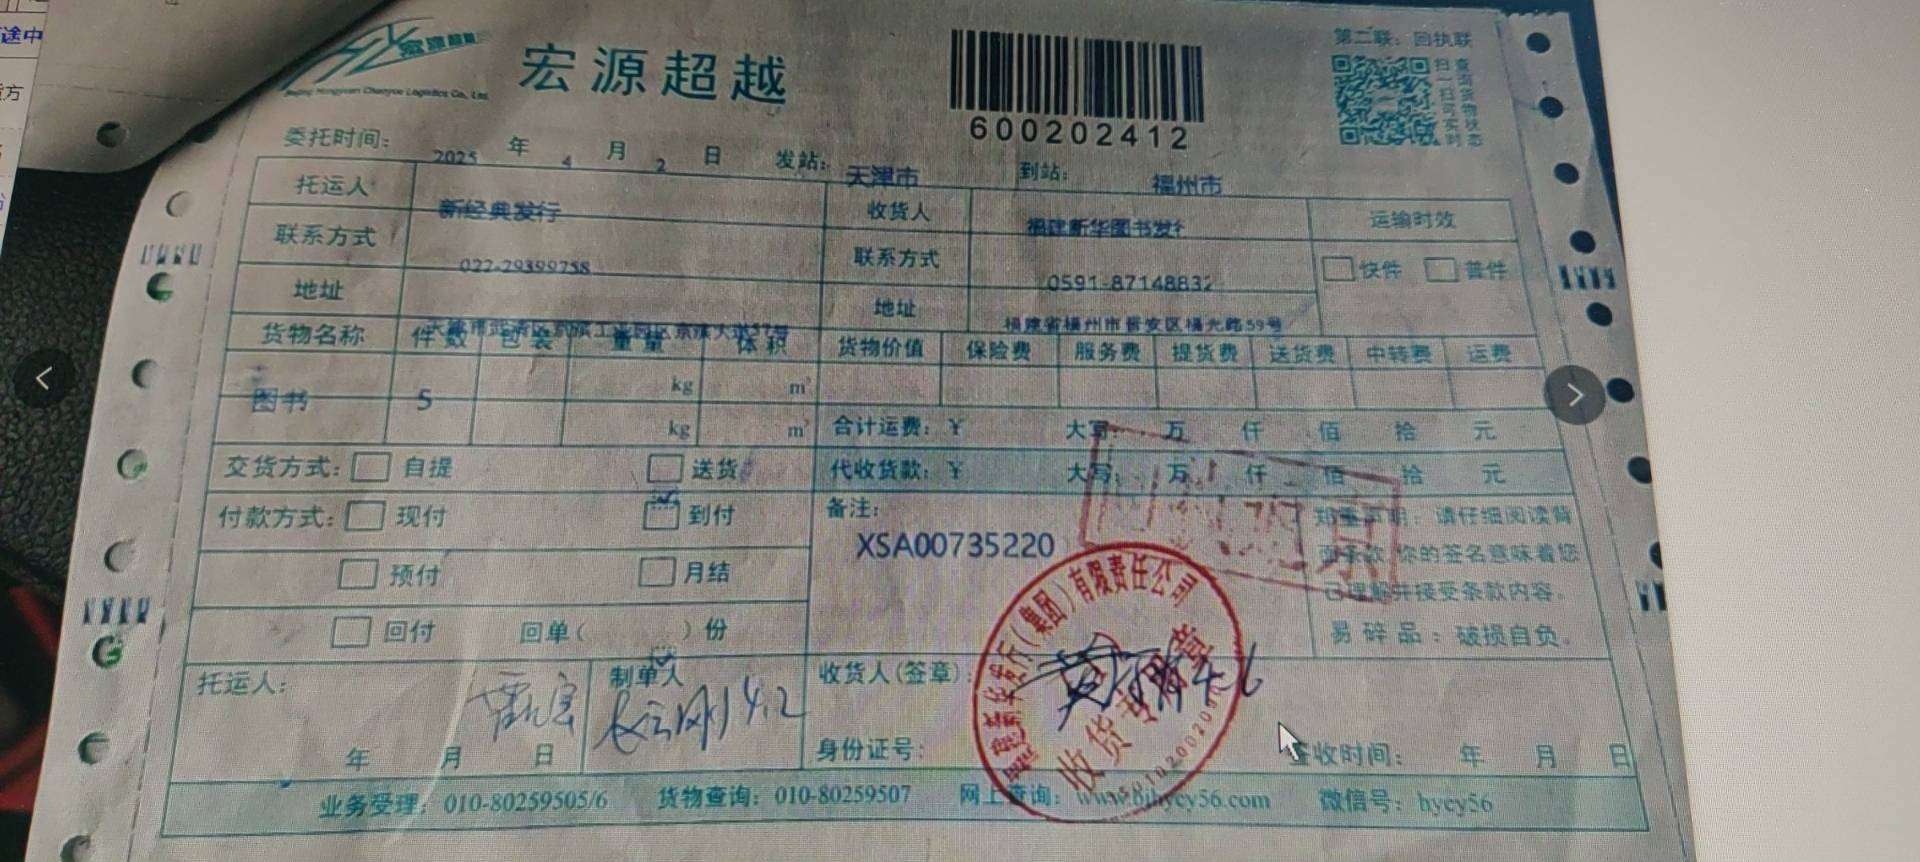 途中
宏源超越
宏源超越
600202412
第二联：回执联
扫一扫 查询货物实时状态
委托时间： 2025 年 4 月 2 日 发站： 天津市 到站： 福州市
托运人 新经典发行 收货人 福建新华图书发行 运输时效
联系方式 022-29399758 联系方式 0591-87148832 快件 普件
地址 地址 福建省福州市晋安区福光路59号
货物名称 件数 包装 重量 体积 货物价值 保险费 服务费 提货费 送货费 中转费 运费
图书 5 kg m³
kg m³ 合计运费：￥ 大写： 万 仟 佰 拾 元
交货方式： 自提 送货 代收货款：￥ 大写： 万 仟 佰 拾 元
付款方式： 现付 到付 备注：
XSA00735220
郑重声明：请仔细阅读背
面条款 你的签名意味着您
已理解并接受条款内容。
易碎品：破损自负。
预付 月结
回付 回单（ ）份
新华发行（集团）有限责任公司
收货专用章
托运人： 制单人 4.2 收货人（签章）： 4.6
年 月 日 身份证号： 签收时间： 年 月 日
业务受理：010-80259505/6 货物查询：010-80259507 网上查询：www.bjhycy56.com 微信号：hycy56